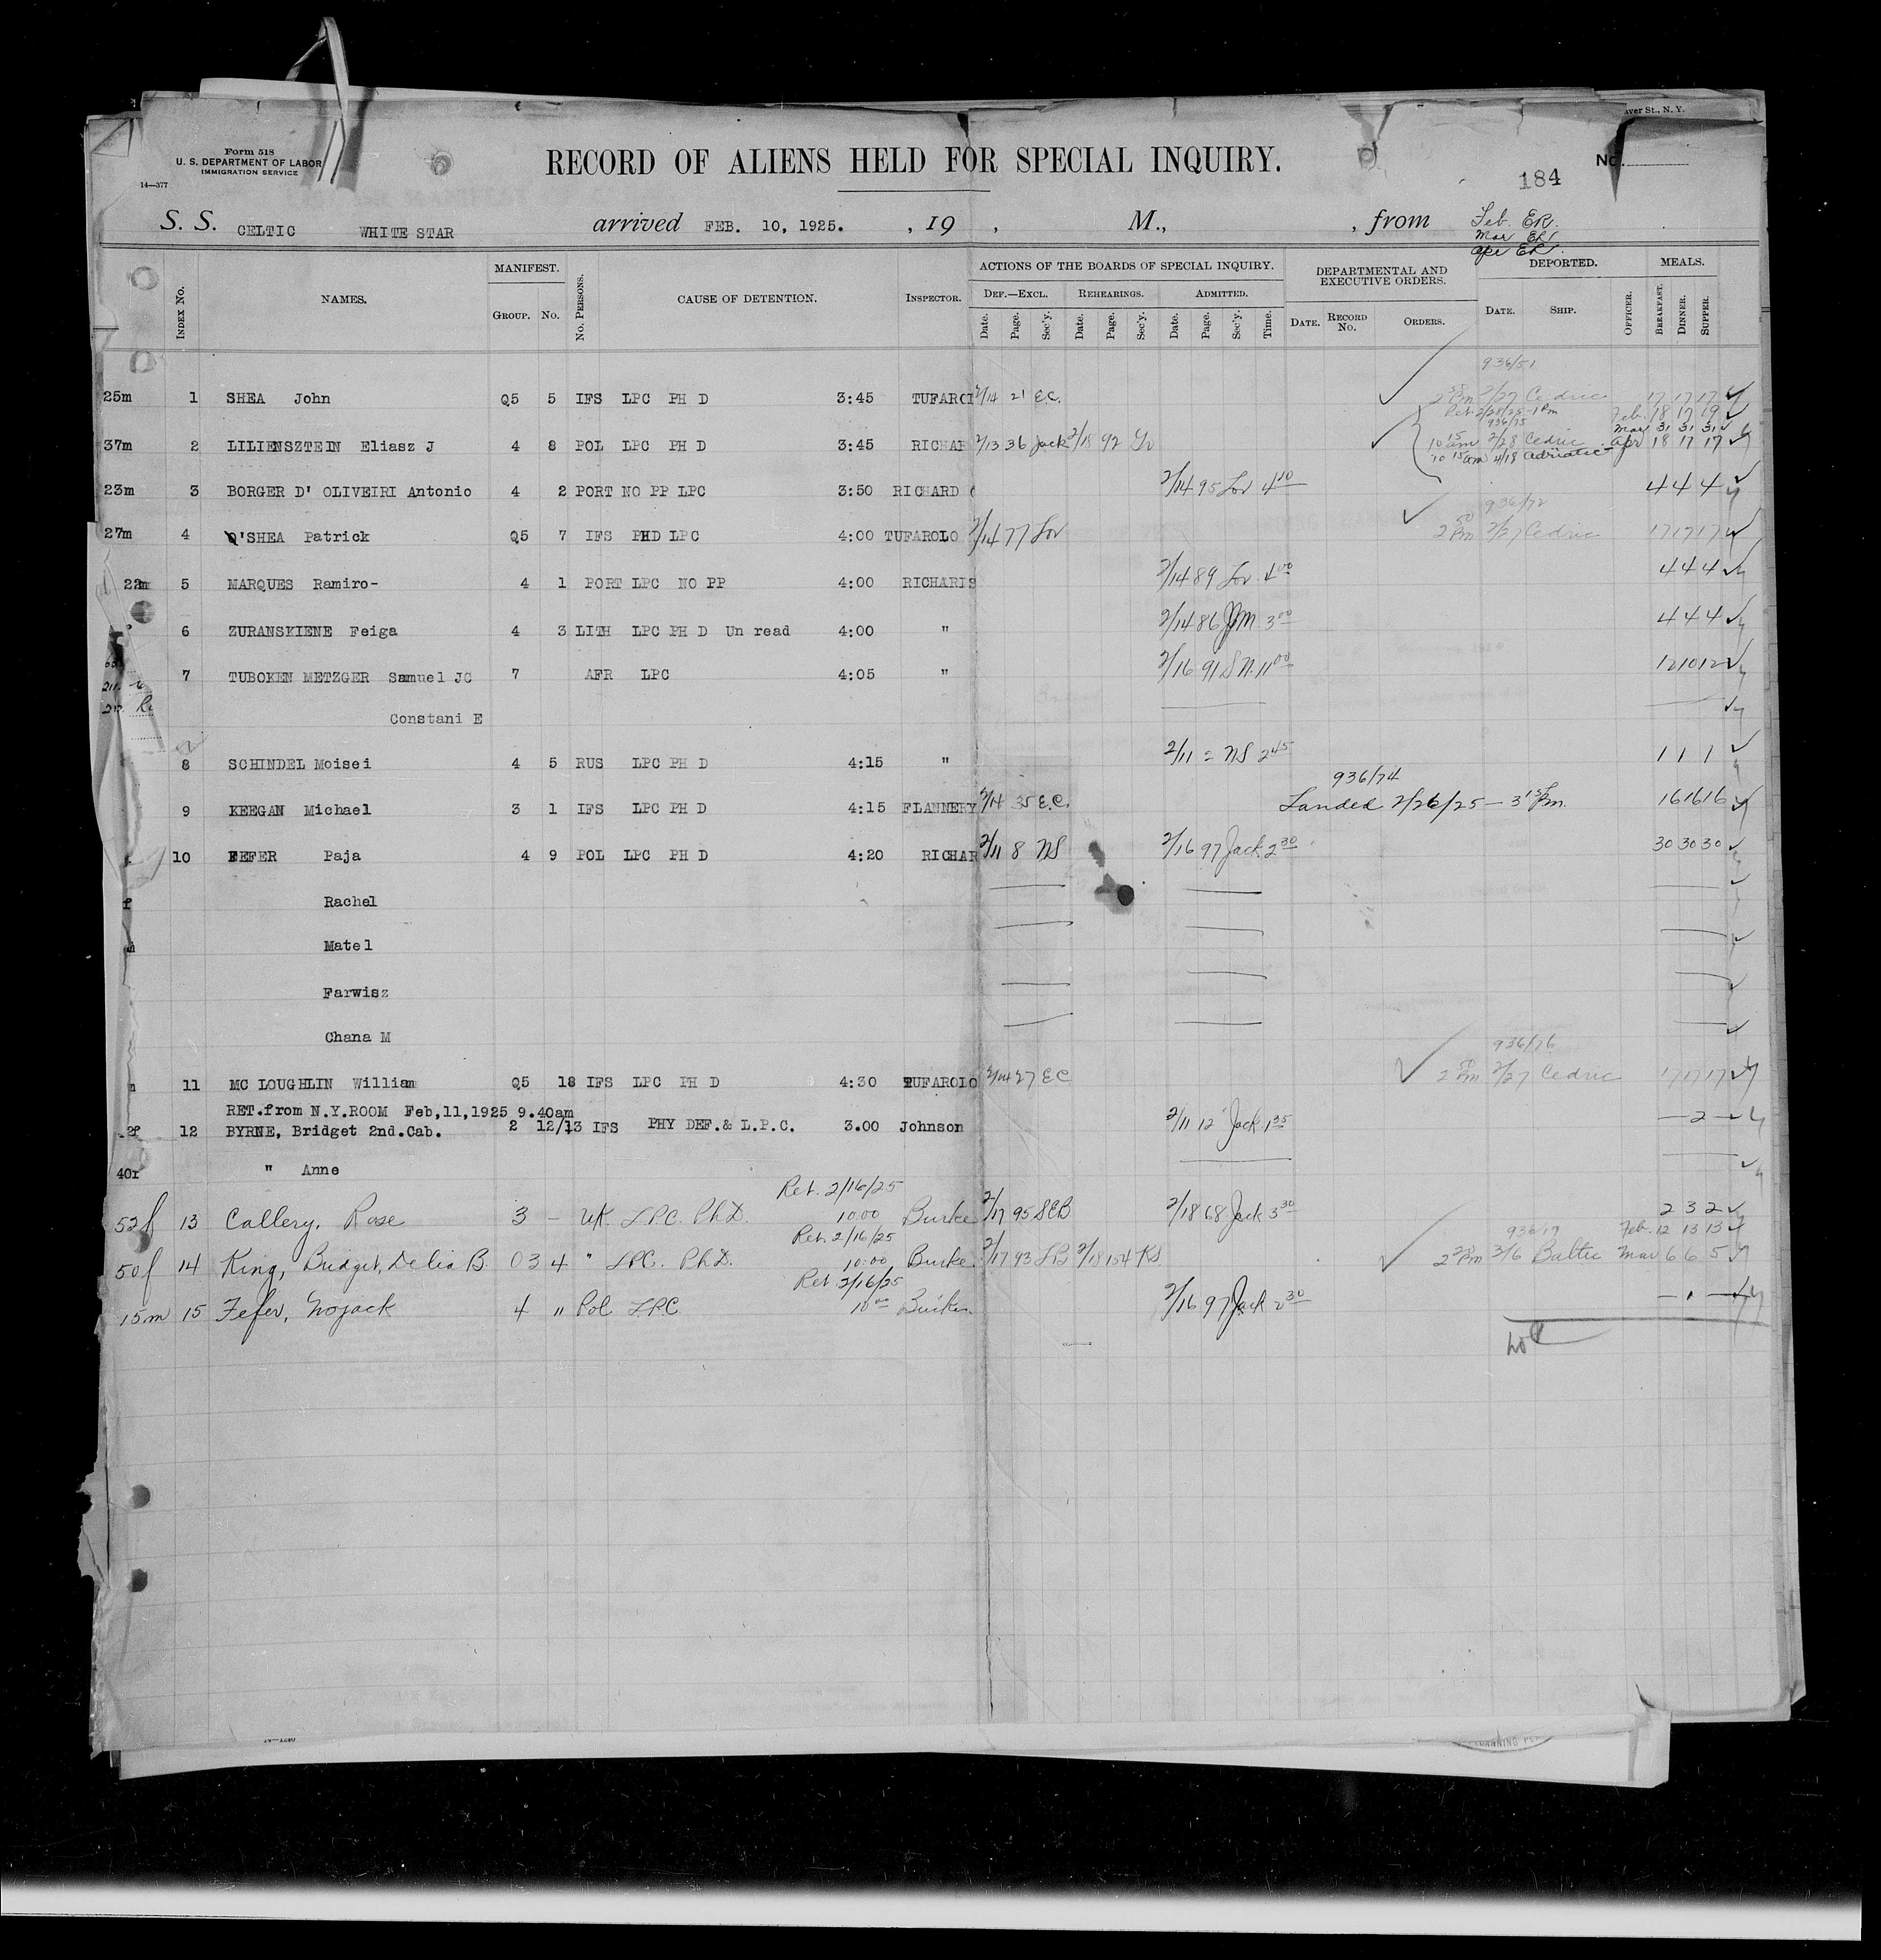 aver St., N. Y.
Form 518
U. S. DEPARTMENT OF LABOR
IMMIGRATION SERVICE
14—377
RECORD OF ALIENS HELD FOR SPECIAL INQUIRY.
No.
184
S. S. CELTIC WHITE STAR arrived FEB. 10, 1925. , 19 , M., , from
Feb ER.
Mar ER.
Apr ER.
INDEX No. NAMES. MANIFEST. GROUP. No. No. PERSONS. CAUSE OF DETENTION. INSPECTOR. ACTIONS OF THE BOARDS OF SPECIAL INQUIRY. DEPARTMENTAL AND EXECUTIVE ORDERS. DEPORTED. MEALS.
DEF.—EXCL. REHEARINGS. ADMITTED.
Date. Page. Sec'y. Date. Page. Sec'y. Date. Page. Sec'y. Time. DATE. RECORD No. ORDERS. DATE. SHIP. OFFICER. BREAKFAST. DINNER. SUPPER.
936/51
25m 1 SHEA John Q5 5 IFS LPC PH D 3:45 TUFARO 2/14 21 E.C. 2 50 Pm 2/27 Cedric 17 17 17
Ret 2/28/25 - 1 Pm Feb. 18 17 19
936/75 Mar 31 31 31
37m 2 LILIENSZTEIN Eliasz J 4 8 POL LPC PH D 3:45 RICHAR 2/13 36 Jack 2/18 92 10 15 am 2/28 Cedric Apr 18 17 17
10 15 am 4/18 Adriatic
23m 3 BORGER D' OLIVEIRI Antonio 4 2 PORT NO PP LPC 3:50 RICHARD 2/14 95 Lov 4 10 4 4 4
936/72
27m 4 O'SHEA Patrick Q5 7 IFS PHD LPC 4:00 TUFAROLO 2/14 77 Lov 2 50 Pm 2/27 Cedric 17 17 17
22m 5 MARQUES Ramiro- 4 1 PORT LPC NO PP 4:00 RICHARIS 2/14 89 Lov 4 00 4 4 4
6 ZURANSKIENE Feiga 4 3 LITH LPC PH D Un read 4:00 " 2/14 86 JJM 3 00 4 4 4
7 TUBOKEN METZGER Samuel JC 7 AFR LPC 4:05 " 2/16 91 S N. 11 00 12 10 12
Constani E
8 SCHINDEL Moisei 4 5 RUS LPC PH D 4:15 " 2/11 2 NS 2 45 1 1 1
936/74
9 KEEGAN Michael 3 1 IFS LPC PH D 4:15 FLANNERY 2/14 35 E.C. Landed 2/26/25 — 3 15 Pm. 16 16 16
10 FEFER Paja 4 9 POL LPC PH D 4:20 RICHAR 2/11 8 NS 2/16 97 Jack 2 30 30 30 30
f Rachel
Matel
Farwisz
Chana M
936/76
11 MC LOUGHLIN William Q5 18 IFS LPC PH D 4:30 TUFAROLO 2/14 27 EC 2 50 Pm 2/27 Cedric 17 17 17
RET.from N.Y.ROOM Feb,11,1925 9.40am
12 BYRNE, Bridget 2nd.Cab. 2 12/13 IFS PHY DEF.& L.P.C. 3.00 Johnson 2/11 12 Jack 1 35 — 2 —
40f " Anne
Ret. 2/16/25
52f 13 Callery, Rose 3 — UK. LPC. PhD. 10:00 Burke 2/17 95 SEB 2/18 68 Jack 3 30 2 3 2
Ret. 2/16/25 Feb. 12 13 13
50f 14 King, Bridget, Delia B. 03 4 " LPC. PhD. 10:00 Burke 2/17 93 2/18 154 KS 2 20 Pm 3/6 Baltic Mar 6 6 5
Ret 2/16/25
15m 15 Fefer, Nojack 4 " Pol LPC 10 00 Burke 2/16 97 Jack 2 30 — 1 —